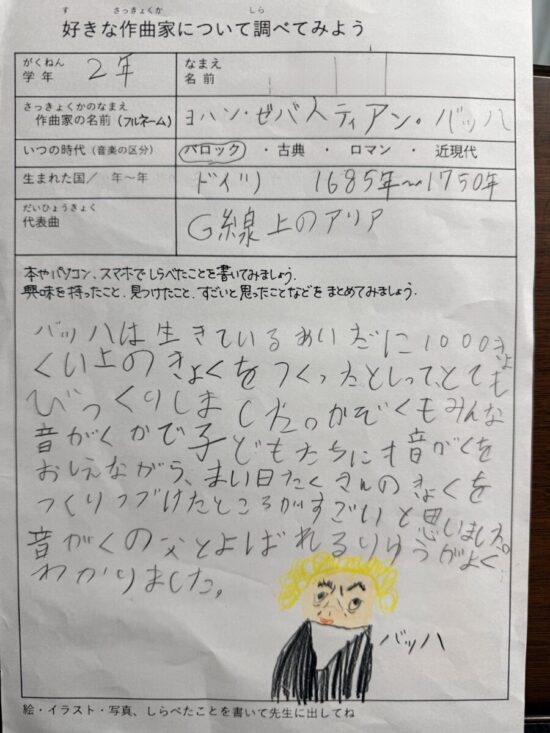 す さっきょくか しら
好きな作曲家について調べてみよう
がくねん
学年 2年
なまえ
名前
さっきょくかのなまえ
作曲家の名前(フルネーム) ヨハン・ゼバスティアン・バッハ
いつの時代(音楽の区分) バロック ・古典 ・ ロマン ・ 近現代
生まれた国/ 年〜年 ドイツ 1685年〜1750年
だいひょうきょく
代表曲 G線上のアリア
本やパソコン、スマホでしらべたことを書いてみましょう.
興味を持ったこと、見つけたこと、すごいと思ったことなどをまとめてみましょう.
バッハは生きているあいだに1000きょ
くい上のきょくをつくったとしって、とても
びっくりしました。かぞくもみんな
音がくかで子どもたちにも音がくを
おしえながら、まい日たくさんのきょくを
つくりつづけたところがすごいと思いました。
音がくの父とよばれるりゆうがよく
わかりました。
バッハ
絵・イラスト・写真、しらべたことを書いて先生に出してね